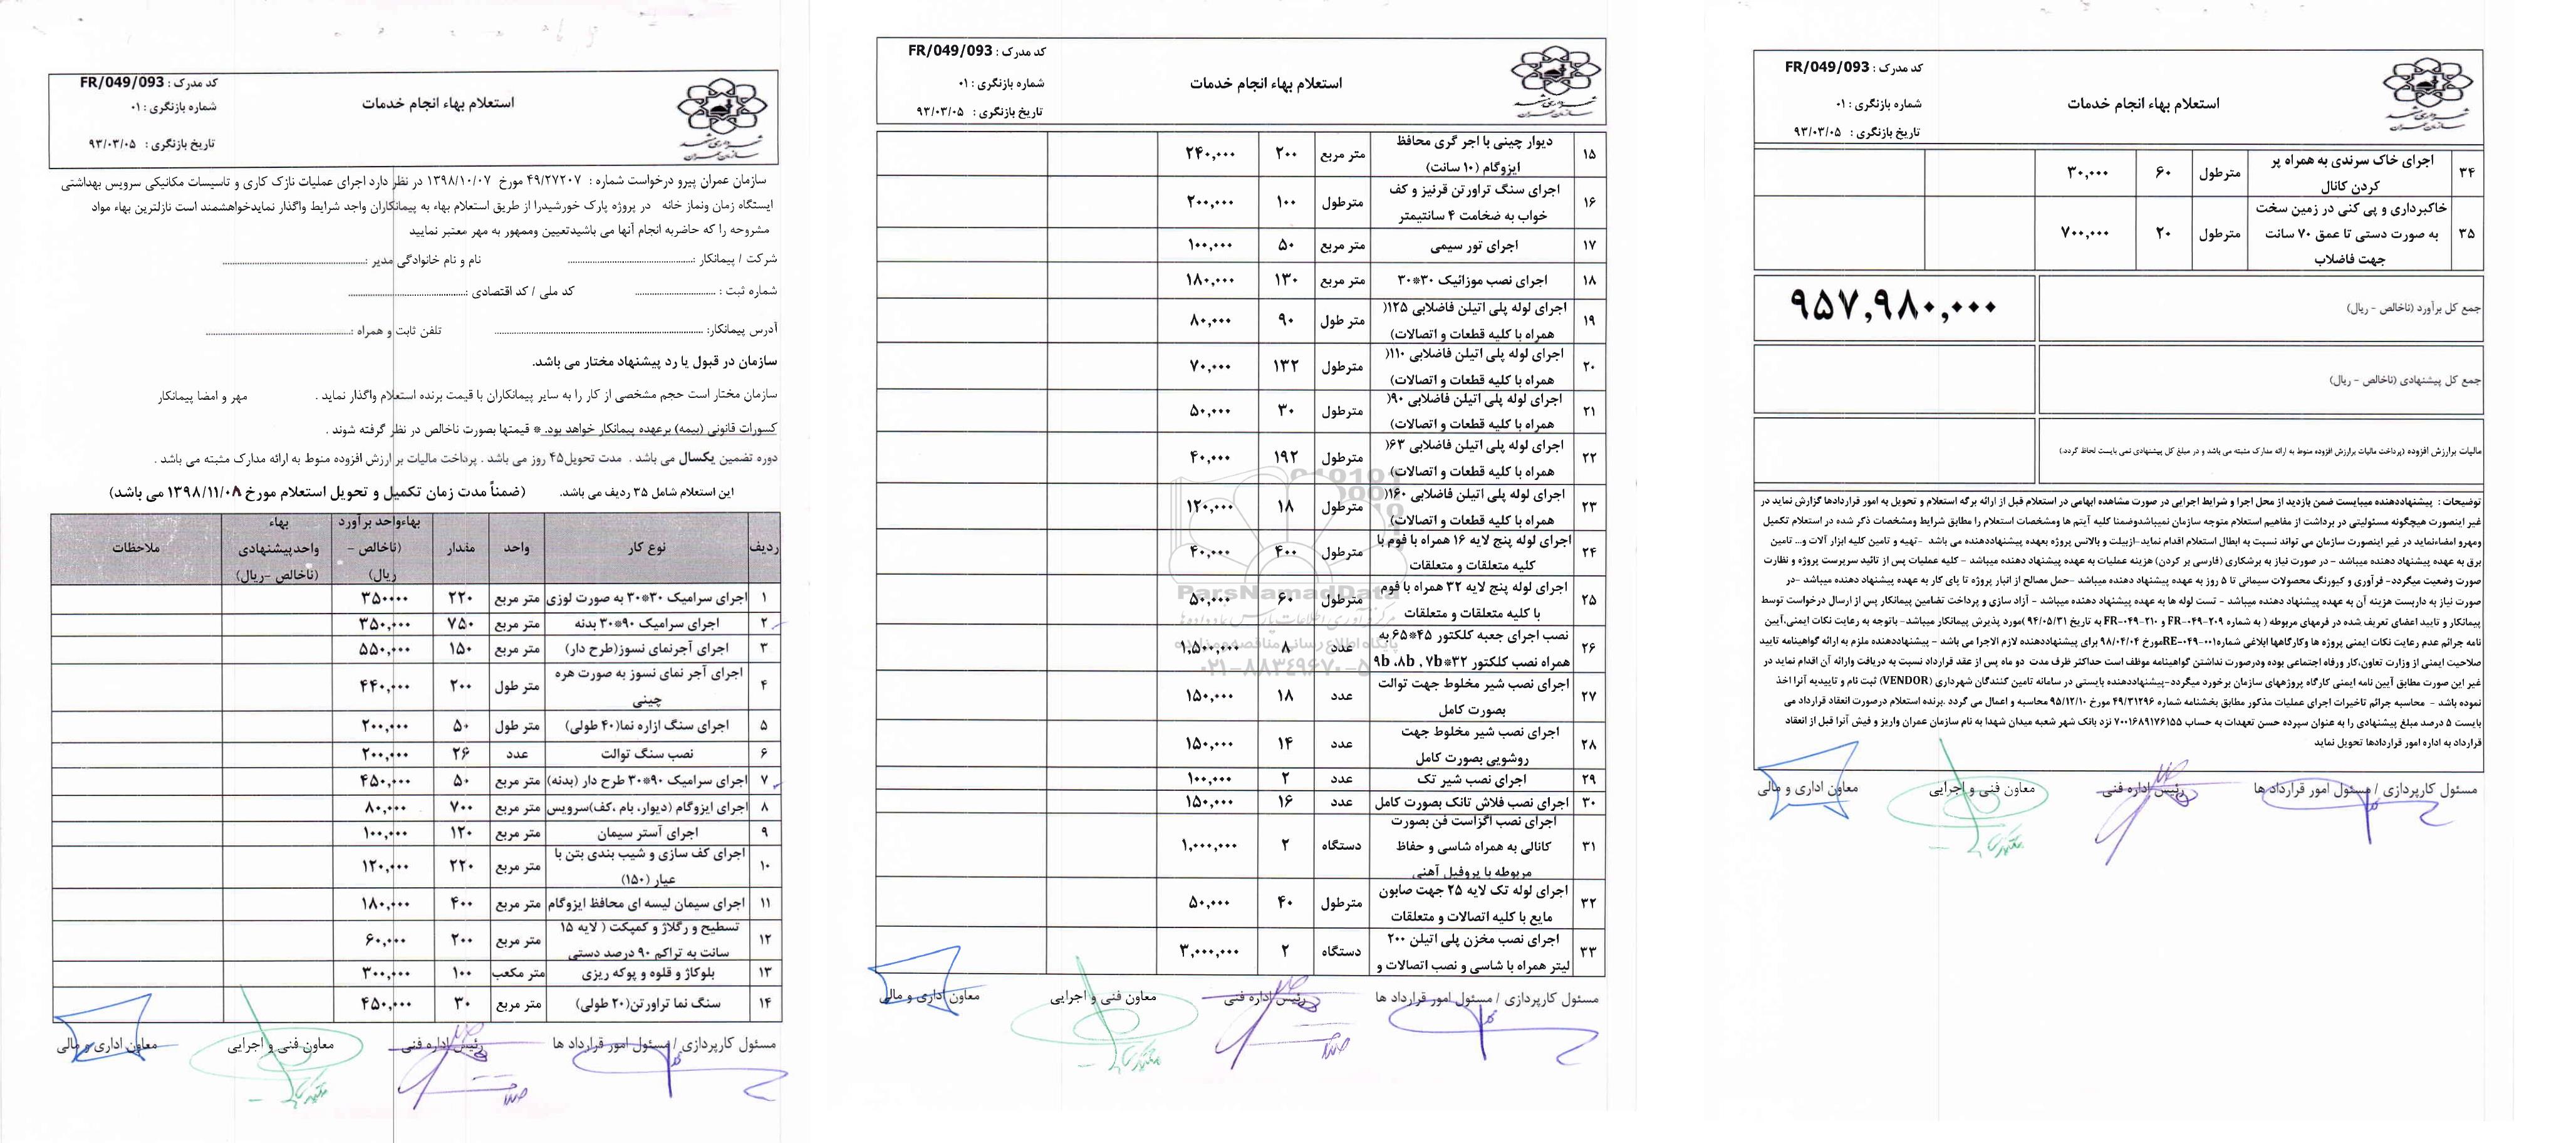 کد مدرک : FR/049/093
استعلام بهاء انجام خدمات
شماره بازنگری : ۰۱
تاریخ بازنگری : ۹۳/۰۳/۰۵
سازمان عمران پیرو درخواست شماره : ۴۹/۲۷۲۰۷ مورخ ۱۳۹۸/۱۰/۰۷ در نظر دارد اجرای عملیات نازک کاری و تاسیسات مکانیکی سرویس بهداشتی
ایستگاه زمان ونماز خانه در پروژه پارک خورشیدرا از طریق استعلام بهاء به پیمانکاران واجد شرایط واگذار نمایدخواهشمند است نازلترین بهاء مواد
مشروحه را که حاضربه انجام آنها می باشیدتعیین وممهور به مهر معتبر نمایید
شرکت / پیمانکار : نام و نام خانوادگی مدیر :
شماره ثبت : کد ملی / کد اقتصادی :
آدرس پیمانکار: تلفن ثابت و همراه :
سازمان در قبول یا رد پیشنهاد مختار می باشد.
سازمان مختار است حجم مشخصی از کار را به سایر پیمانکاران با قیمت برنده استعلام واگذار نماید . مهر و امضا پیمانکار
کسورات قانونی (بیمه) برعهده پیمانکار خواهد بود. * قیمتها بصورت ناخالص در نظر گرفته شوند .
دوره تضمین یکسال می باشد . مدت تحویل۴۵ روز می باشد . پرداخت مالیات بر ارزش افزوده منوط به ارائه مدارک مثبته می باشد .
این استعلام شامل ۳۵ ردیف می باشد. (ضمناً مدت زمان تکمیل و تحویل استعلام مورخ ۱۳۹۸/۱۱/۰۸ می باشد)
ردیف نوع کار واحد مقدار بهاءواحد برآورد (ناخالص – ریال) بهاء واحدپیشنهادی (ناخالص –ریال) ملاحظات
۱ اجرای سرامیک ۳۰*۳۰ به صورت لوزی متر مربع ۲۲۰ ۳۵۰۰۰۰
۲ اجرای سرامیک ۹۰*۳۰ بدنه متر مربع ۷۵۰ ۳۵۰,۰۰۰
۳ اجرای آجرنمای نسوز(طرح دار) متر مربع ۱۵۰ ۵۵۰,۰۰۰
۴ اجرای آجر نمای نسوز به صورت هره چینی متر طول ۲۰۰ ۴۴۰,۰۰۰
۵ اجرای سنگ ازاره نما(۴۰ طولی) متر طول ۵۰ ۲۰۰,۰۰۰
۶ نصب سنگ توالت عدد ۲۶ ۲۰۰,۰۰۰
۷ اجرای سرامیک ۹۰*۳۰ طرح دار (بدنه) متر مربع ۵۰ ۴۵۰,۰۰۰
۸ اجرای ایزوگام (دیوار، بام ،کف)سرویس متر مربع ۷۰۰ ۸۰,۰۰۰
۹ اجرای آستر سیمان متر مربع ۱۲۰ ۱۰۰,۰۰۰
۱۰ اجرای کف سازی و شیب بندی بتن با عیار (۱۵۰) متر مربع ۲۲۰ ۱۲۰,۰۰۰
۱۱ اجرای سیمان لیسه ای محافظ ایزوگام متر مربع ۴۰۰ ۱۸۰,۰۰۰
۱۲ تسطیح و رگلاژ و کمپکت ( لایه ۱۵ سانت به تراکم ۹۰ درصد دستی متر مربع ۲۰۰ ۶۰,۰۰۰
۱۳ بلوکاژ و قلوه و پوکه ریزی متر مکعب ۱۰۰ ۳۰۰,۰۰۰
۱۴ سنگ نما تراورتن(۲۰ طولی) متر مربع ۳۰ ۴۵۰,۰۰۰
مسئول کارپردازی / مسئول امور قرارداد ها رئیس اداره فنی معاون فنی و اجرایی معاون اداری و مالی
کد مدرک : FR/049/093
استعلام بهاء انجام خدمات
شماره بازنگری : ۰۱
تاریخ بازنگری : ۹۳/۰۳/۰۵
۱۵ دیوار چینی با اجر گری محافظ ایزوگام (۱۰ سانت) متر مربع ۲۰۰ ۲۴۰,۰۰۰
۱۶ اجرای سنگ تراورتن قرنیز و کف خواب به ضخامت ۴ سانتیمتر مترطول ۱۰۰ ۲۰۰,۰۰۰
۱۷ اجرای تور سیمی متر مربع ۵۰ ۱۰۰,۰۰۰
۱۸ اجرای نصب موزائیک ۳۰*۳۰ متر مربع ۱۳۰ ۱۸۰,۰۰۰
۱۹ اجرای لوله پلی اتیلن فاضلابی ۱۲۵( همراه با کلیه قطعات و اتصالات) متر طول ۹۰ ۸۰,۰۰۰
۲۰ اجرای لوله پلی اتیلن فاضلابی ۱۱۰( همراه با کلیه قطعات و اتصالات) مترطول ۱۳۲ ۷۰,۰۰۰
۲۱ اجرای لوله پلی اتیلن فاضلابی ۹۰( همراه با کلیه قطعات و اتصالات) مترطول ۳۰ ۵۰,۰۰۰
۲۲ اجرای لوله پلی اتیلن فاضلابی ۶۳( همراه با کلیه قطعات و اتصالات) مترطول ۱۹۲ ۴۰,۰۰۰
۲۳ اجرای لوله پلی اتیلن فاضلابی ۱۶۰( همراه با کلیه قطعات و اتصالات) مترطول ۱۸ ۱۲۰,۰۰۰
۲۴ اجرای لوله پنج لایه ۱۶ همراه با فوم با کلیه متعلقات و متعلقات مترطول ۴۰۰ ۴۰,۰۰۰
۲۵ اجرای لوله پنج لایه ۳۲ همراه با فوم با کلیه متعلقات و متعلقات مترطول ۶۰ ۵۰,۰۰۰
۲۶ نصب اجرای جعبه کلکتور ۴۵*۶۵ به همراه نصب کلکتور ۳۲*7b ، 8b، 9b عدد ۸ ۱,۵۰۰,۰۰۰
۲۷ اجرای نصب شیر مخلوط جهت توالت بصورت کامل عدد ۱۸ ۱۵۰,۰۰۰
۲۸ اجرای نصب شیر مخلوط جهت روشویی بصورت کامل عدد ۱۴ ۱۵۰,۰۰۰
۲۹ اجرای نصب شیر تک عدد ۲ ۱۰۰,۰۰۰
۳۰ اجرای نصب فلاش تانک بصورت کامل عدد ۱۶ ۱۵۰,۰۰۰
۳۱ اجرای نصب اگزاست فن بصورت کانالی به همراه شاسی و حفاظ مربوطه با پروفیل آهنی دستگاه ۲ ۱,۰۰۰,۰۰۰
۳۲ اجرای لوله تک لایه ۲۵ جهت صابون مایع با کلیه اتصالات و متعلقات مترطول ۴۰ ۵۰,۰۰۰
۳۳ اجرای نصب مخزن پلی اتیلن ۲۰۰ لیتر همراه با شاسی و نصب اتصالات و دستگاه ۲ ۳,۰۰۰,۰۰۰
ParsNamadData
پایگاه اطلاع رسانی مناقصه و مزایده
۰۲۱-۸۸۳۴۹۶۷۰-۵
مسئول کارپردازی / مسئول امور قرارداد ها رئیس اداره فنی معاون فنی و اجرایی معاون اداری و مالی
کد مدرک : FR/049/093
استعلام بهاء انجام خدمات
شماره بازنگری : ۰۱
تاریخ بازنگری : ۹۳/۰۳/۰۵
۳۴ اجرای خاک سرندی به همراه پر کردن کانال مترطول ۶۰ ۳۰,۰۰۰
۳۵ خاکبرداری و پی کنی در زمین سخت به صورت دستی تا عمق ۷۰ سانت جهت فاضلاب مترطول ۲۰ ۷۰۰,۰۰۰
جمع کل برآورد (ناخالص – ریال) ۹۵۷,۹۸۰,۰۰۰
جمع کل پیشنهادی (ناخالص – ریال)
مالیات برارزش افزوده (پرداخت مالیات برارزش افزوده منوط به ارائه مدارک مثبته می باشد و در مبلغ کل پیشنهادی نمی بایست لحاظ گردد.)
توضیحات : پیشنهاددهنده میبایست ضمن بازدید از محل اجرا و شرایط اجرایی در صورت مشاهده ابهامی در استعلام قبل از ارائه برگه استعلام و تحویل به امور قراردادها گزارش نماید در
غیر اینصورت هیچگونه مسئولیتی در برداشت از مفاهیم استعلام متوجه سازمان نمیباشدوضمنا کلیه آیتم ها ومشخصات استعلام را مطابق شرایط ومشخصات ذکر شده در استعلام تکمیل
ومهرو امضاءنماید در غیر اینصورت سازمان می تواند نسبت به ابطال استعلام اقدام نماید-ازبیلت و بالانس پروژه بعهده پیشنهاددهنده می باشد -تهیه و تامین کلیه ابزار آلات و... تامین
برق به عهده پیشنهاد دهنده میباشد – در صورت نیاز به برشکاری (فارسی بر کردن) هزینه عملیات به عهده پیشنهاد دهنده میباشد – کلیه عملیات پس از تائید سرپرست پروژه و نظارت
صورت وضعیت میگردد- فرآوری و کیورنگ محصولات سیمانی تا ۵ روز به عهده پیشنهاد دهنده میباشد –حمل مصالح از انبار پروژه تا پای کار به عهده پیشنهاد دهنده میباشد –در
صورت نیاز به داربست هزینه آن به عهده پیشنهاد دهنده میباشد – تست لوله ها به عهده پیشنهاد دهنده میباشد – آزاد سازی و پرداخت تضامین پیمانکار پس از ارسال درخواست توسط
پیمانکار و تایید اعضای تعریف شده در فرمهای مربوطه ( به شماره FR-۰۴۹-۲۰۹ و FR-۰۴۹-۲۱۰ به تاریخ ۹۴/۰۵/۳۱ )مورد پذیرش پیمانکار میباشد- باتوجه به رعایت نکات ایمنی،آیین
نامه جرائم عدم رعایت نکات ایمنی پروژه ها وکارگاهها ابلاغی شماره۰۰۱-۰۴۹-REمورخ ۹۸/۰۴/۰۴ برای پیشنهاددهنده لازم الاجرا می باشد - پیشنهاددهنده ملزم به ارائه گواهینامه تایید
صلاحیت ایمنی از وزارت تعاون،کار ورفاه اجتماعی بوده ودرصورت نداشتن گواهینامه موظف است حداکثر ظرف مدت دو ماه پس از عقد قرارداد نسبت به دریافت وارائه آن اقدام نماید در
غیر این صورت مطابق آیین نامه ایمنی کارگاه پروژههای سازمان برخورد میگردد-پیشنهاددهنده بایستی در سامانه تامین کنندگان شهرداری (VENDOR) ثبت نام و تاییدیه آنرا اخذ
نموده باشد - محاسبه جرائم تاخیرات اجرای عملیات مذکور مطابق بخشنامه شماره ۴۹/۳۱۲۹۶ مورخ ۹۵/۱۲/۱۰ محاسبه و اعمال می گردد .برنده استعلام درصورت انعقاد قرارداد می
بایست ۵ درصد مبلغ پیشنهادی را به عنوان سپرده حسن تعهدات به حساب ۷۰۰۱۶۸۹۱۷۶۱۵۵ نزد بانک شهر شعبه میدان شهدا به نام سازمان عمران واریز و فیش آنرا قبل از انعقاد
قرارداد به اداره امور قراردادها تحویل نماید
مسئول کارپردازی / مسئول امور قرارداد ها رئیس اداره فنی معاون فنی و اجرایی معاون اداری و مالی